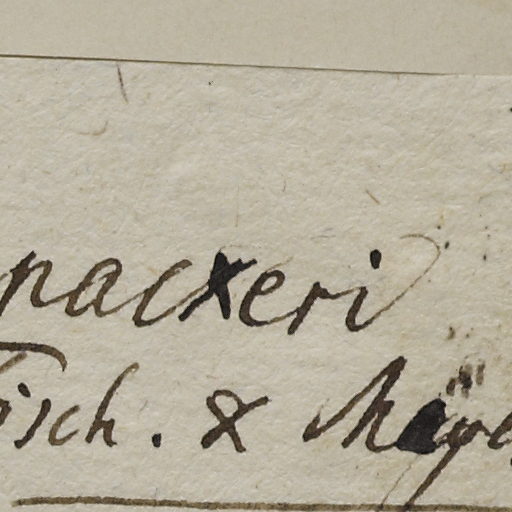 packeri
Fisch. & Meye